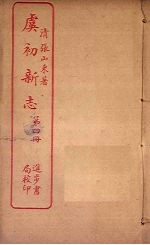 清張山來著
虞初新志
第四冊
進步書
局校印